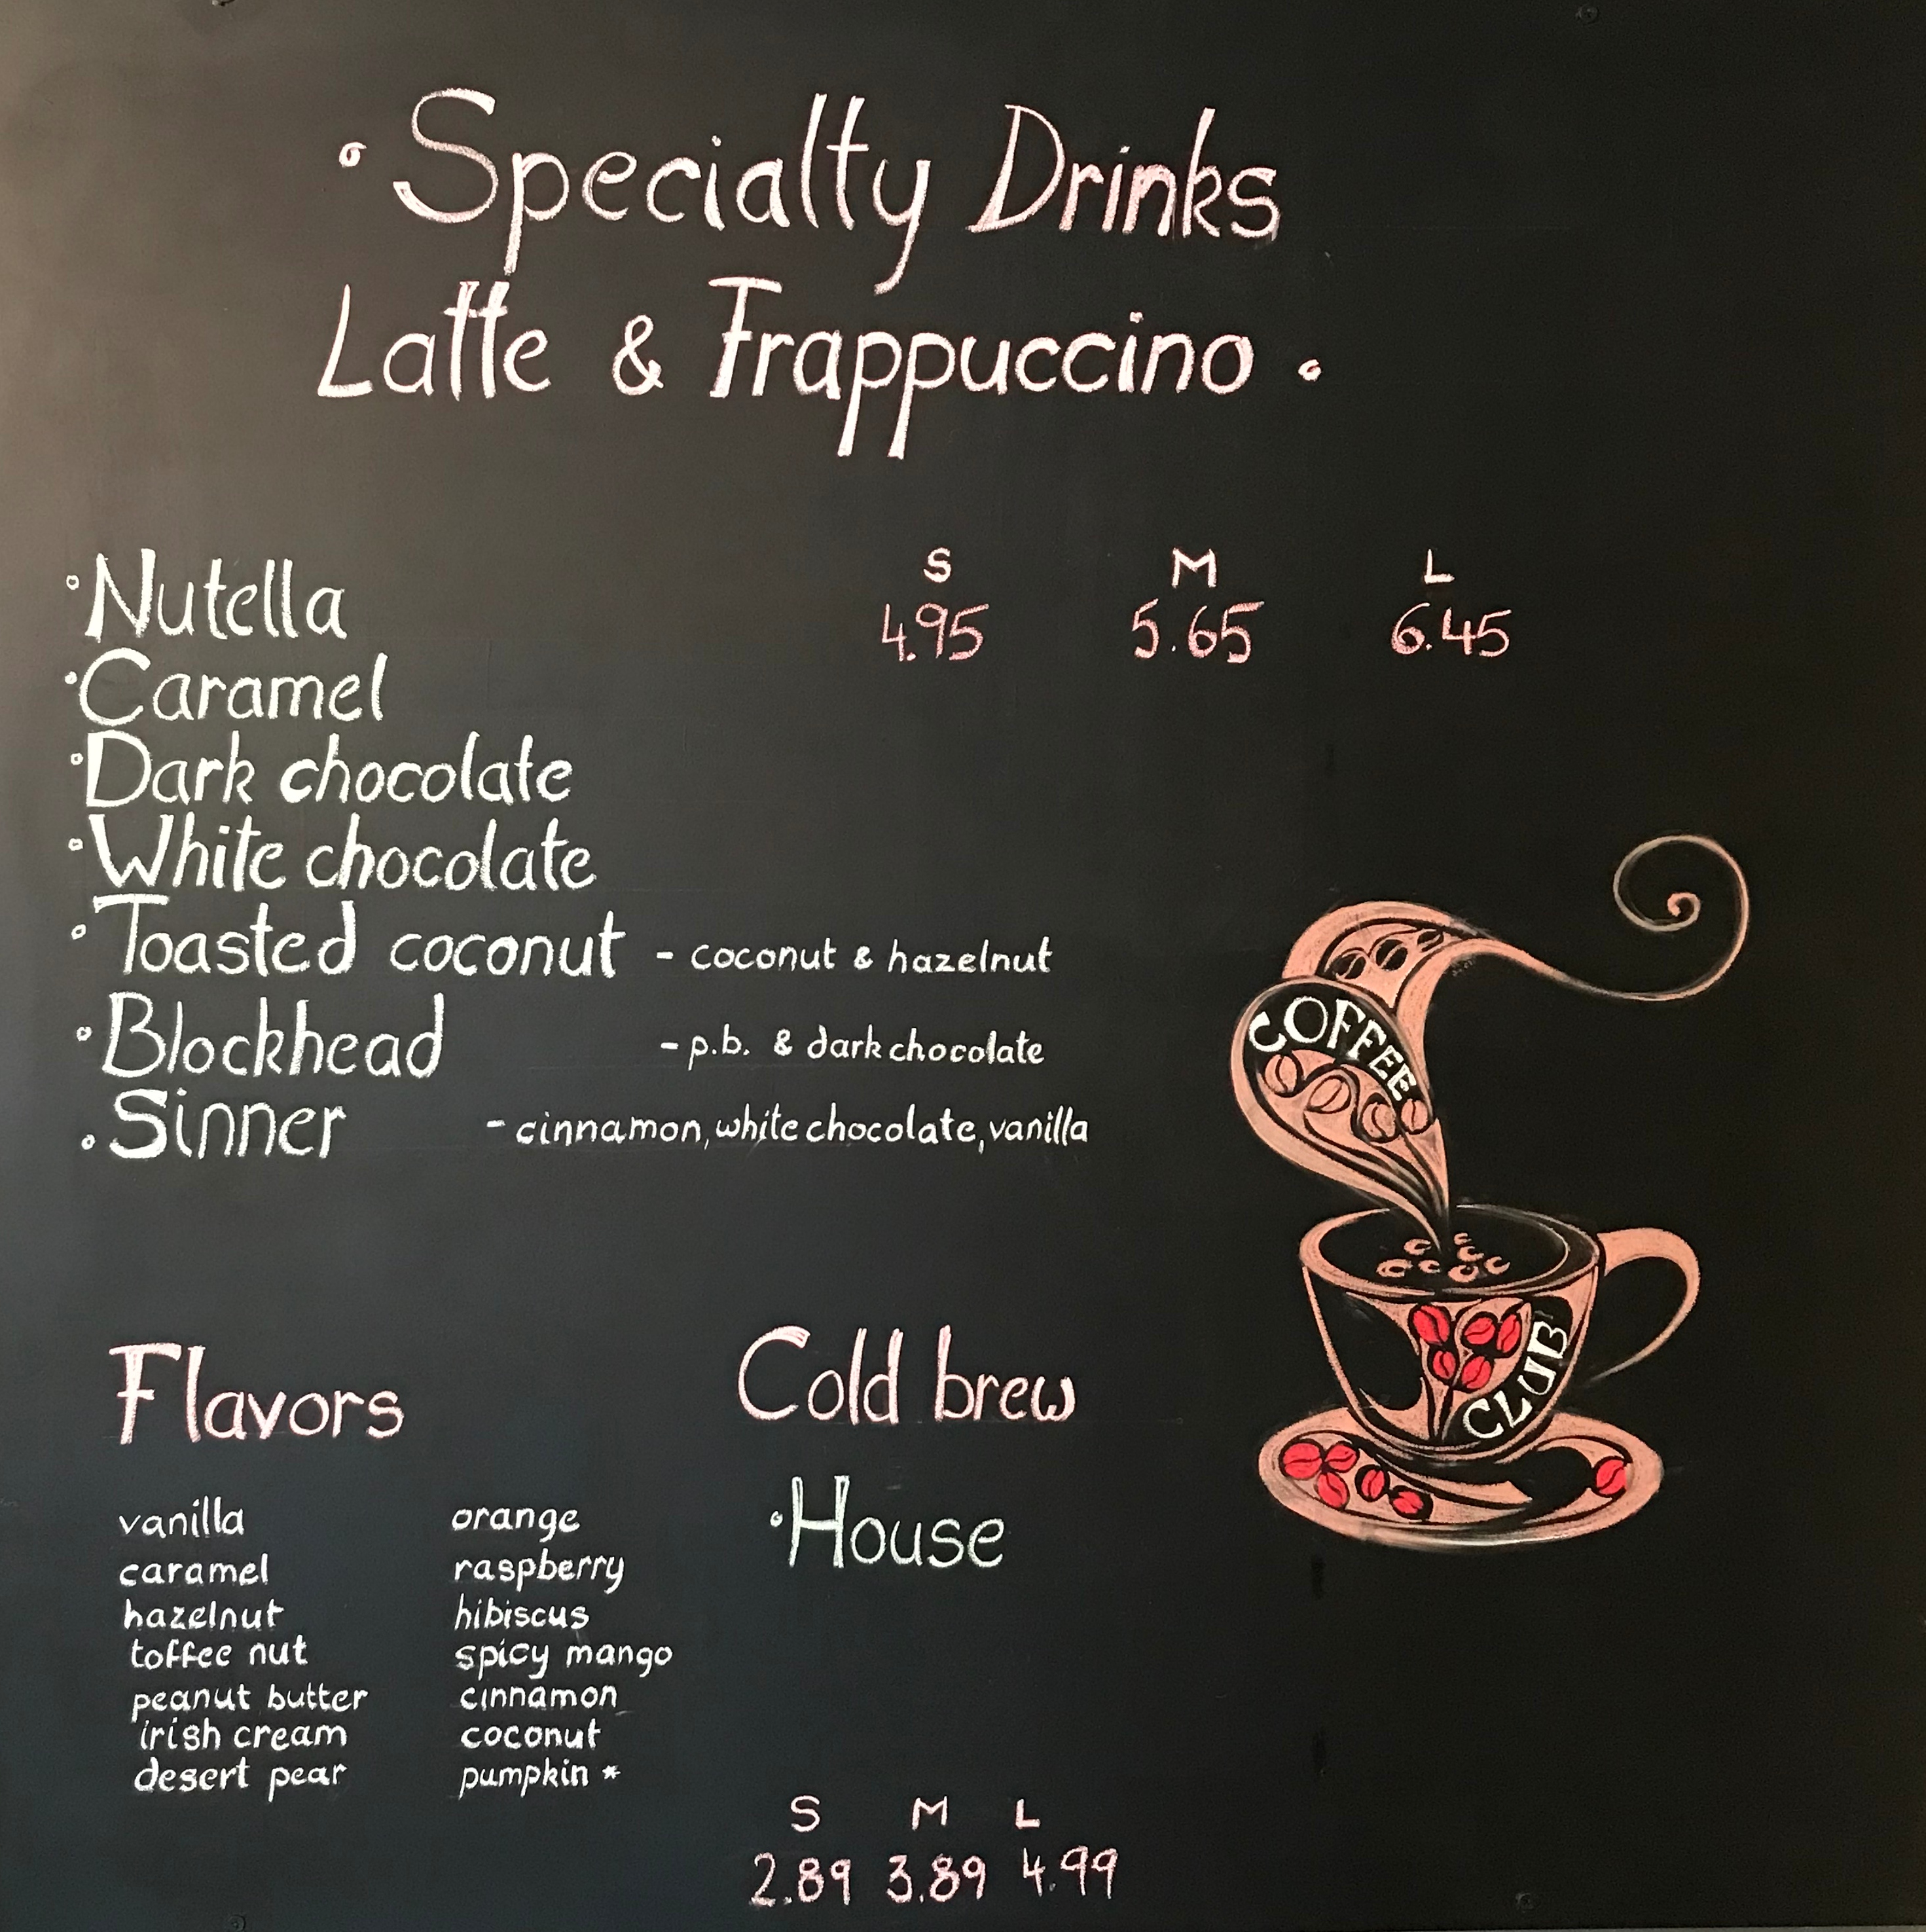 Specialty Drinks
Latte & Frappuccino
S M L
Nutella 4.95 5.65 6.45
Caramel
Dark chocolate
White chocolate
Toasted coconut - coconut & hazelnut
Blockhead - p.b. & dark chocolate
Sinner - cinnamon, white chocolate, vanilla
COFFEE
CLUB
Flavors
vanilla
caramel
hazelnut
toffee nut
peanut butter
irish cream
desert pear
orange
raspberry
hibiscus
spicy mango
cinnamon
coconut
pumpkin *
Cold brew
House
S M L
2.89 3.89 4.99